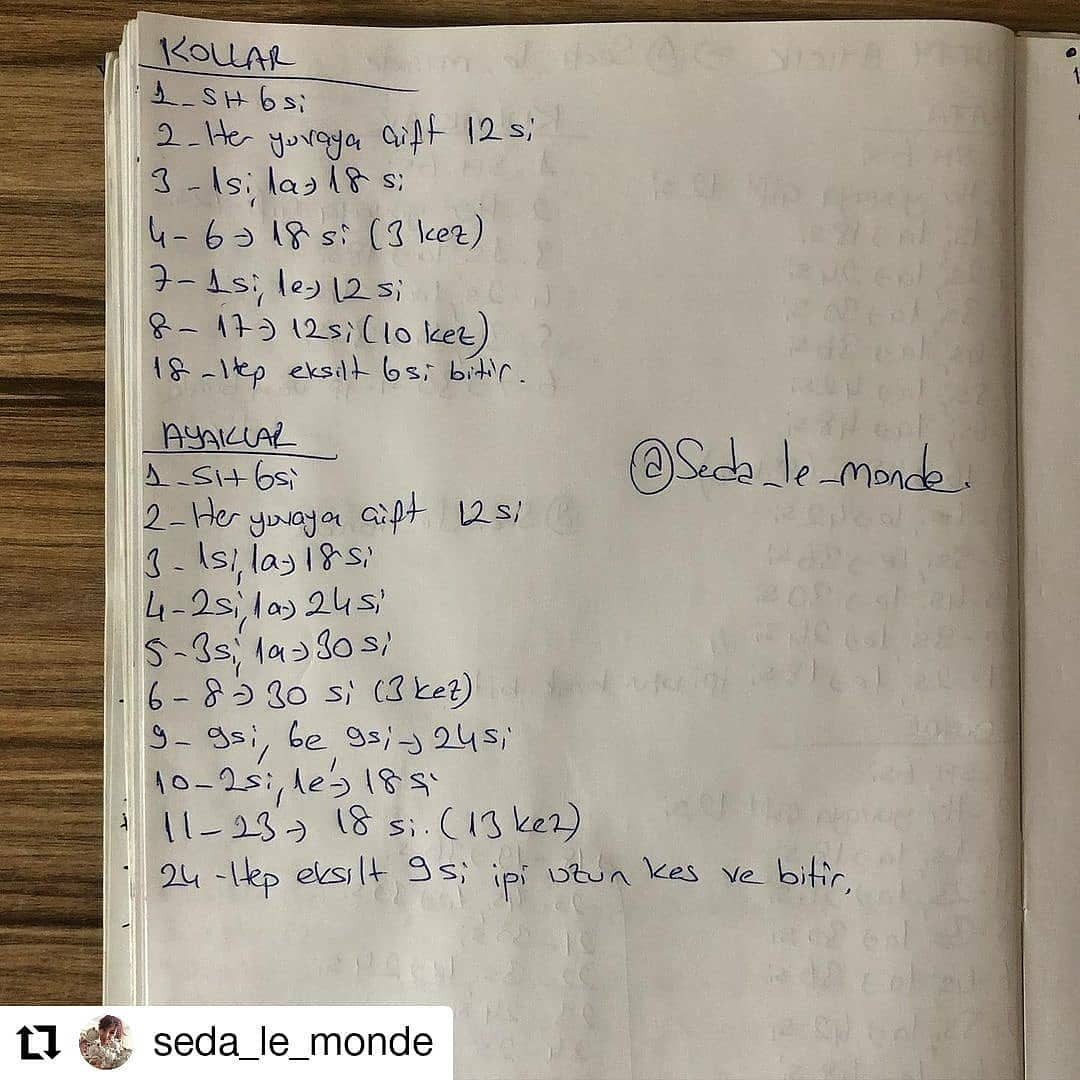 KOLLAR
1- SH 6 si
2- Her yuvaya çift 12 si
3 - 1si, 1a→ 18 si
4- 6→ 18 si (3 kez)
7- 1si, 1e→ 12 si
8- 17→ 12si (10 kez)
18 - Hep eksilt 6si bitir.
AYAKLAR
1- SH 6si
2- Her yuvaya çift 12 si
3 - 1si, 1a→ 18 si
4- 2si, 1a→ 24 si
5- 3si, 1a→ 30 si
6 - 8→ 30 si (3 kez)
9- 9si, 6e 9si→ 24 si
10- 2si, 1e→ 18 si
11- 23→ 18 si. (13 kez)
24 - Hep eksilt 9si ipi uzun kes ve bitir.
@Seda_le_monde.
seda_le_monde